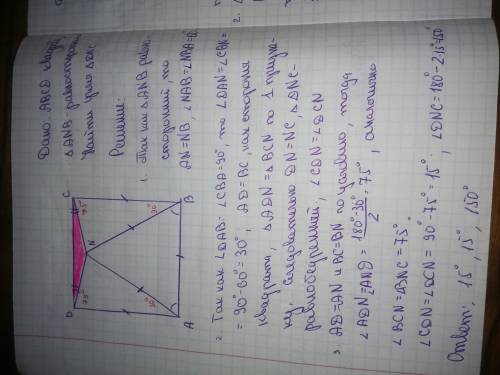 Дано: ABCD квадрат
△ANB - равносторонний
Найти углы △DNC
Решение:
1. Так как △ANB равно-
сторонний, то
AN=NB, ∠NAB=∠NBA=
D
C
75°
75°
N
30°
30°
A
B
2. Так как ∠DAB=∠CBA=90°, то ∠DAN=∠CBN=
=90°-60°=30°, AD=BC, как стороны
квадрата, △ADN=△BCN по 1 призна-
ку, следовательно DN=NC, △DNC-
равнобедренный, ∠CDN=∠DCN
3. AD=AN и BC=BN по условию, тогда
∠ADN=∠AND= 180°-30° / 2 =75°, аналогично
∠BCN=∠BNC=75°
∠CDN=∠DCN=90°-75°=15°, ∠DNC=180°-2·15°=150°
Ответ: 15°, 15°, 150°
2.